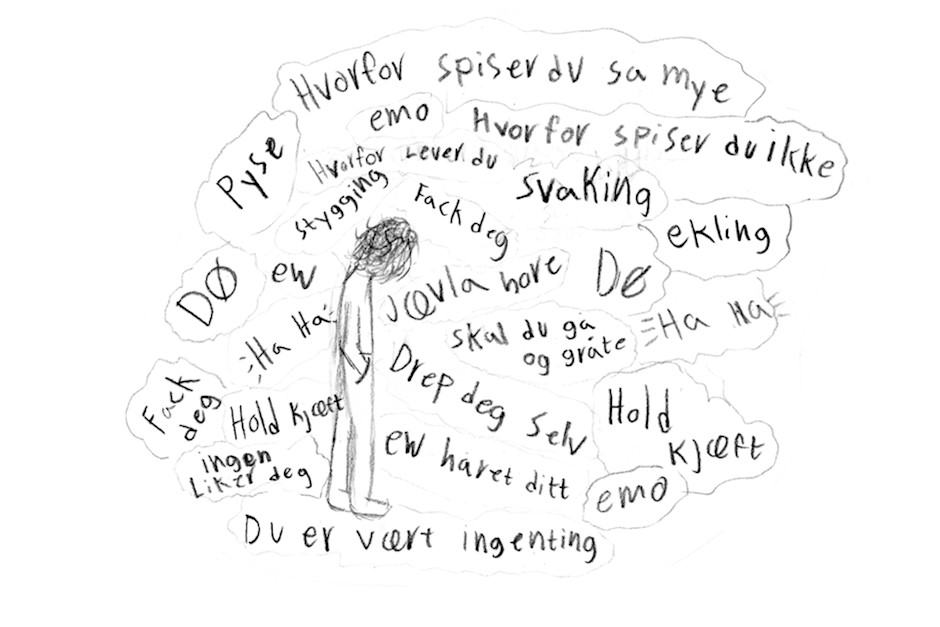 Hvorfor spiser du sa mye
emo
Hvorfor spiser du ikke
Pyse
Hvorfor Lever du
svaking
stygging
Fack deg
ekling
DØ
ew
Jævla hore
DØ
Ha Ha
skal du gå
og gråte
Ha Ha
Fack
deg
Hold Kjæft
Drep deg selv
Hold
Kjæft
ingen
Liker deg
ew håret ditt
emo
Du er vært ingenting